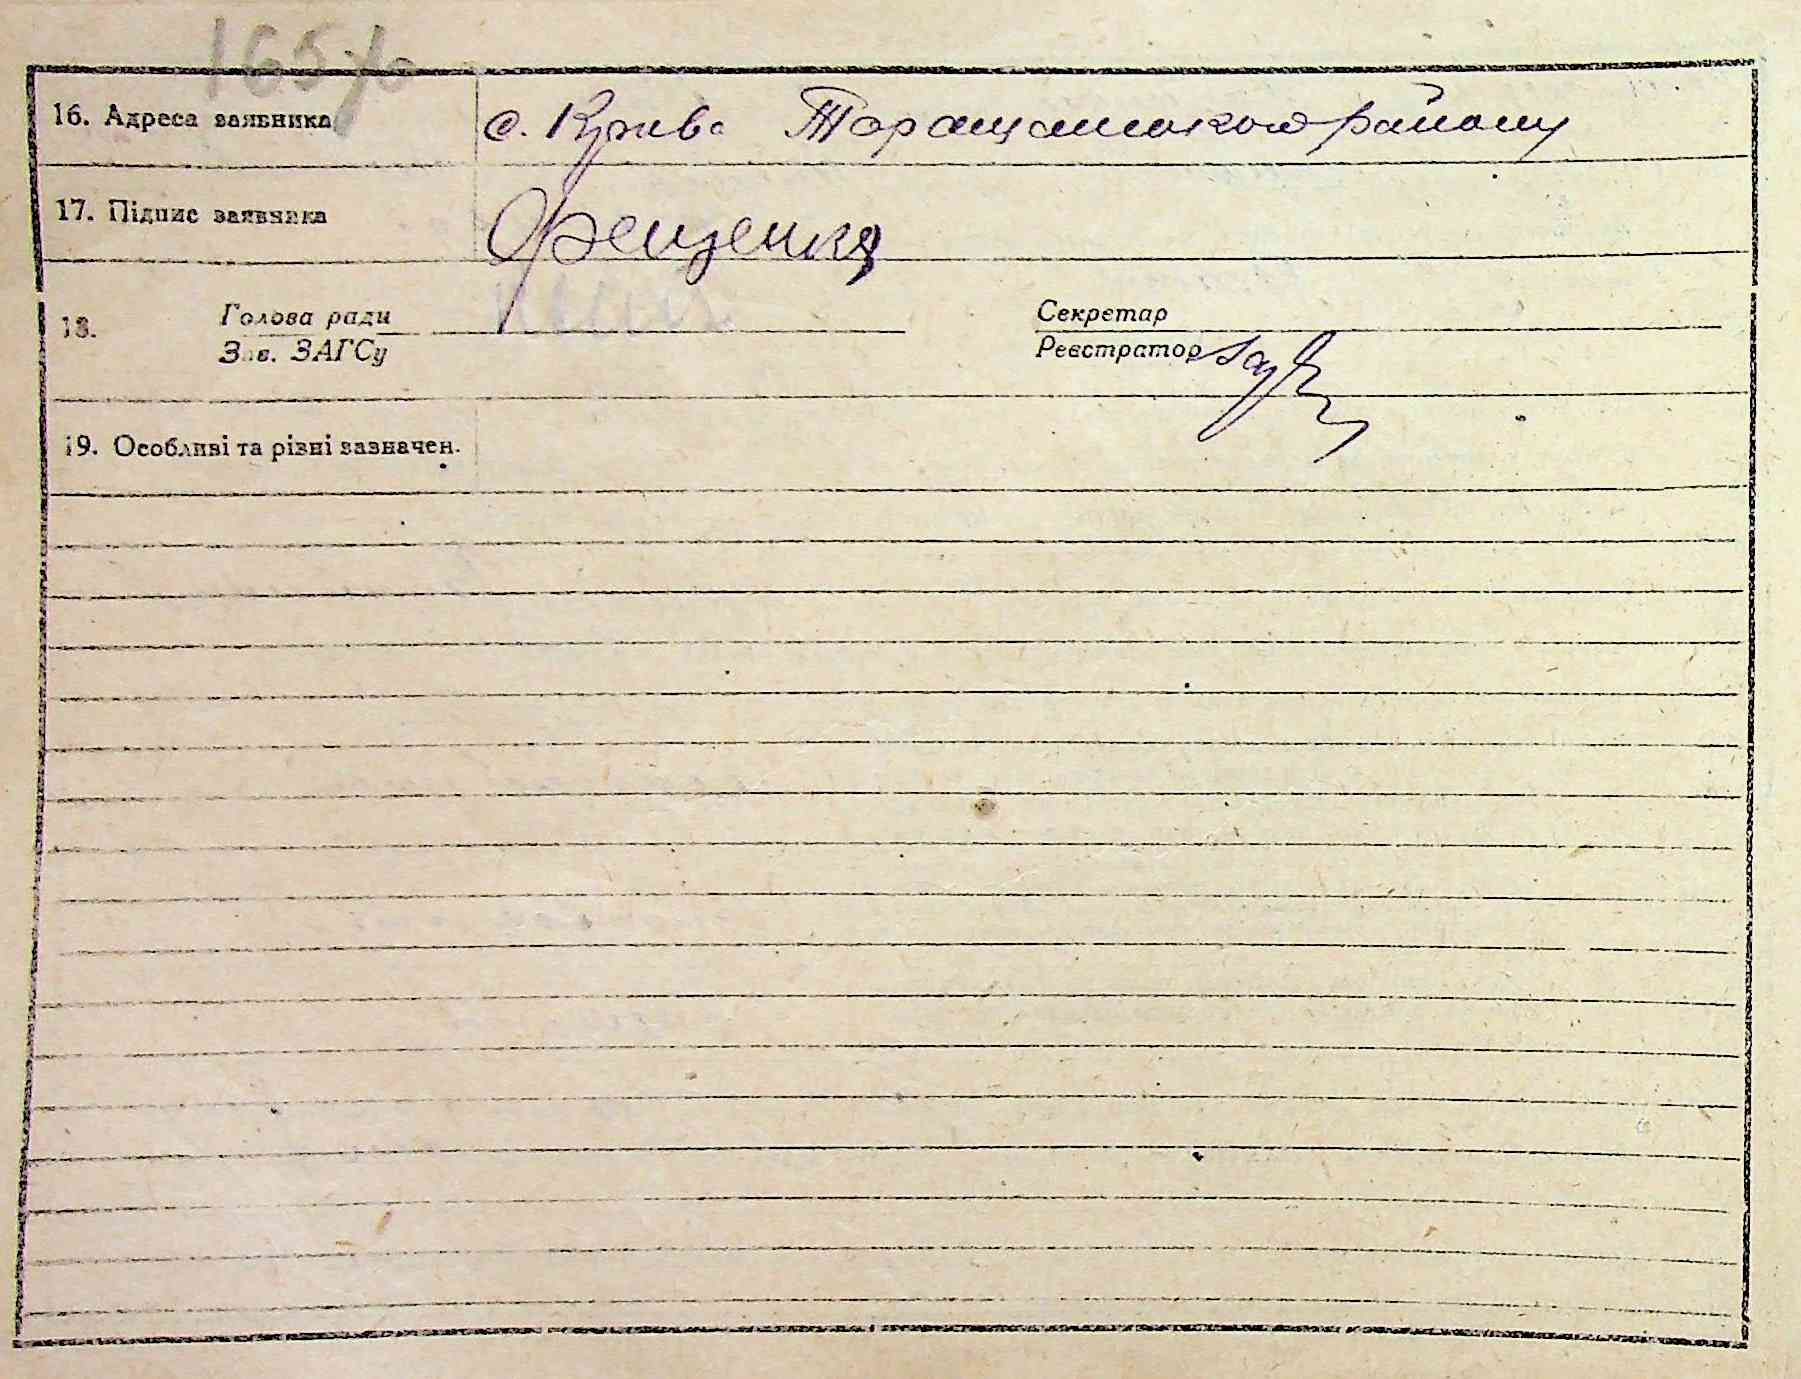 16. Адреса заявника с. Крива Таращанського району
17. Підпис заявника Орещенко
18. Голова ради Секретар
Зав. ЗАГСу Реєстратор
19. Особливі та різні зазначен.